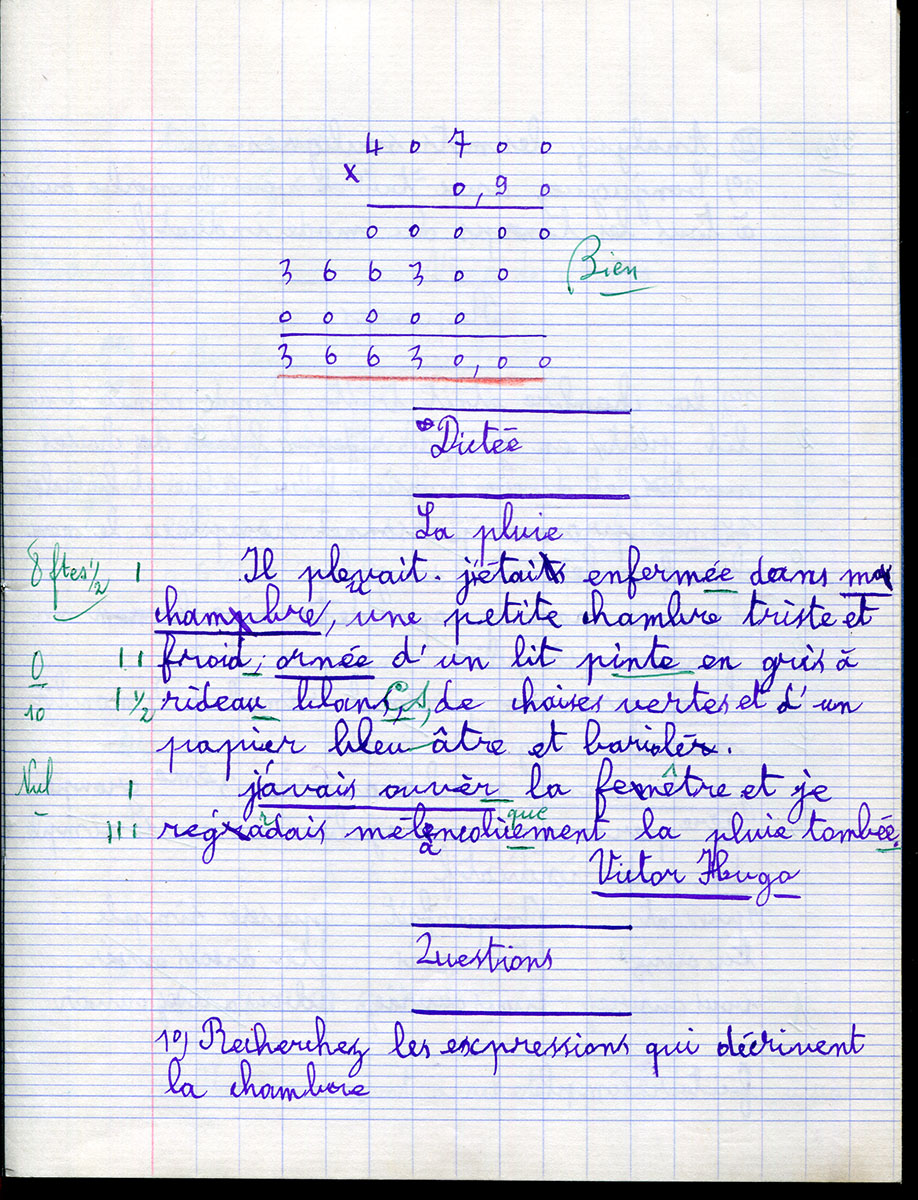 4 0 7 0 0
x 0,9 0
0 0 0 0 0
3 6 6 3 0 0
0 0 0 0 0
3 6 6 3 0,0 0
Bien
Dictée
La pluie
8 ftes ½ I Il pleuvait. j'étais enfermée dans ma
chambre, une petite chambre triste et
0 II froid, ornée d'un lit pinte en gris à
10 I ½ rideau blans, cs, de chaises vertes et d'un
papier bleu âtre et bariolér.
Nul I j'avais ouvèr la fenêtre et je
III regradais mélancoliement que la pluie tombée.
Victor Hugo
Questions
1º) Recherchez les expressions qui décrivent
la chambre